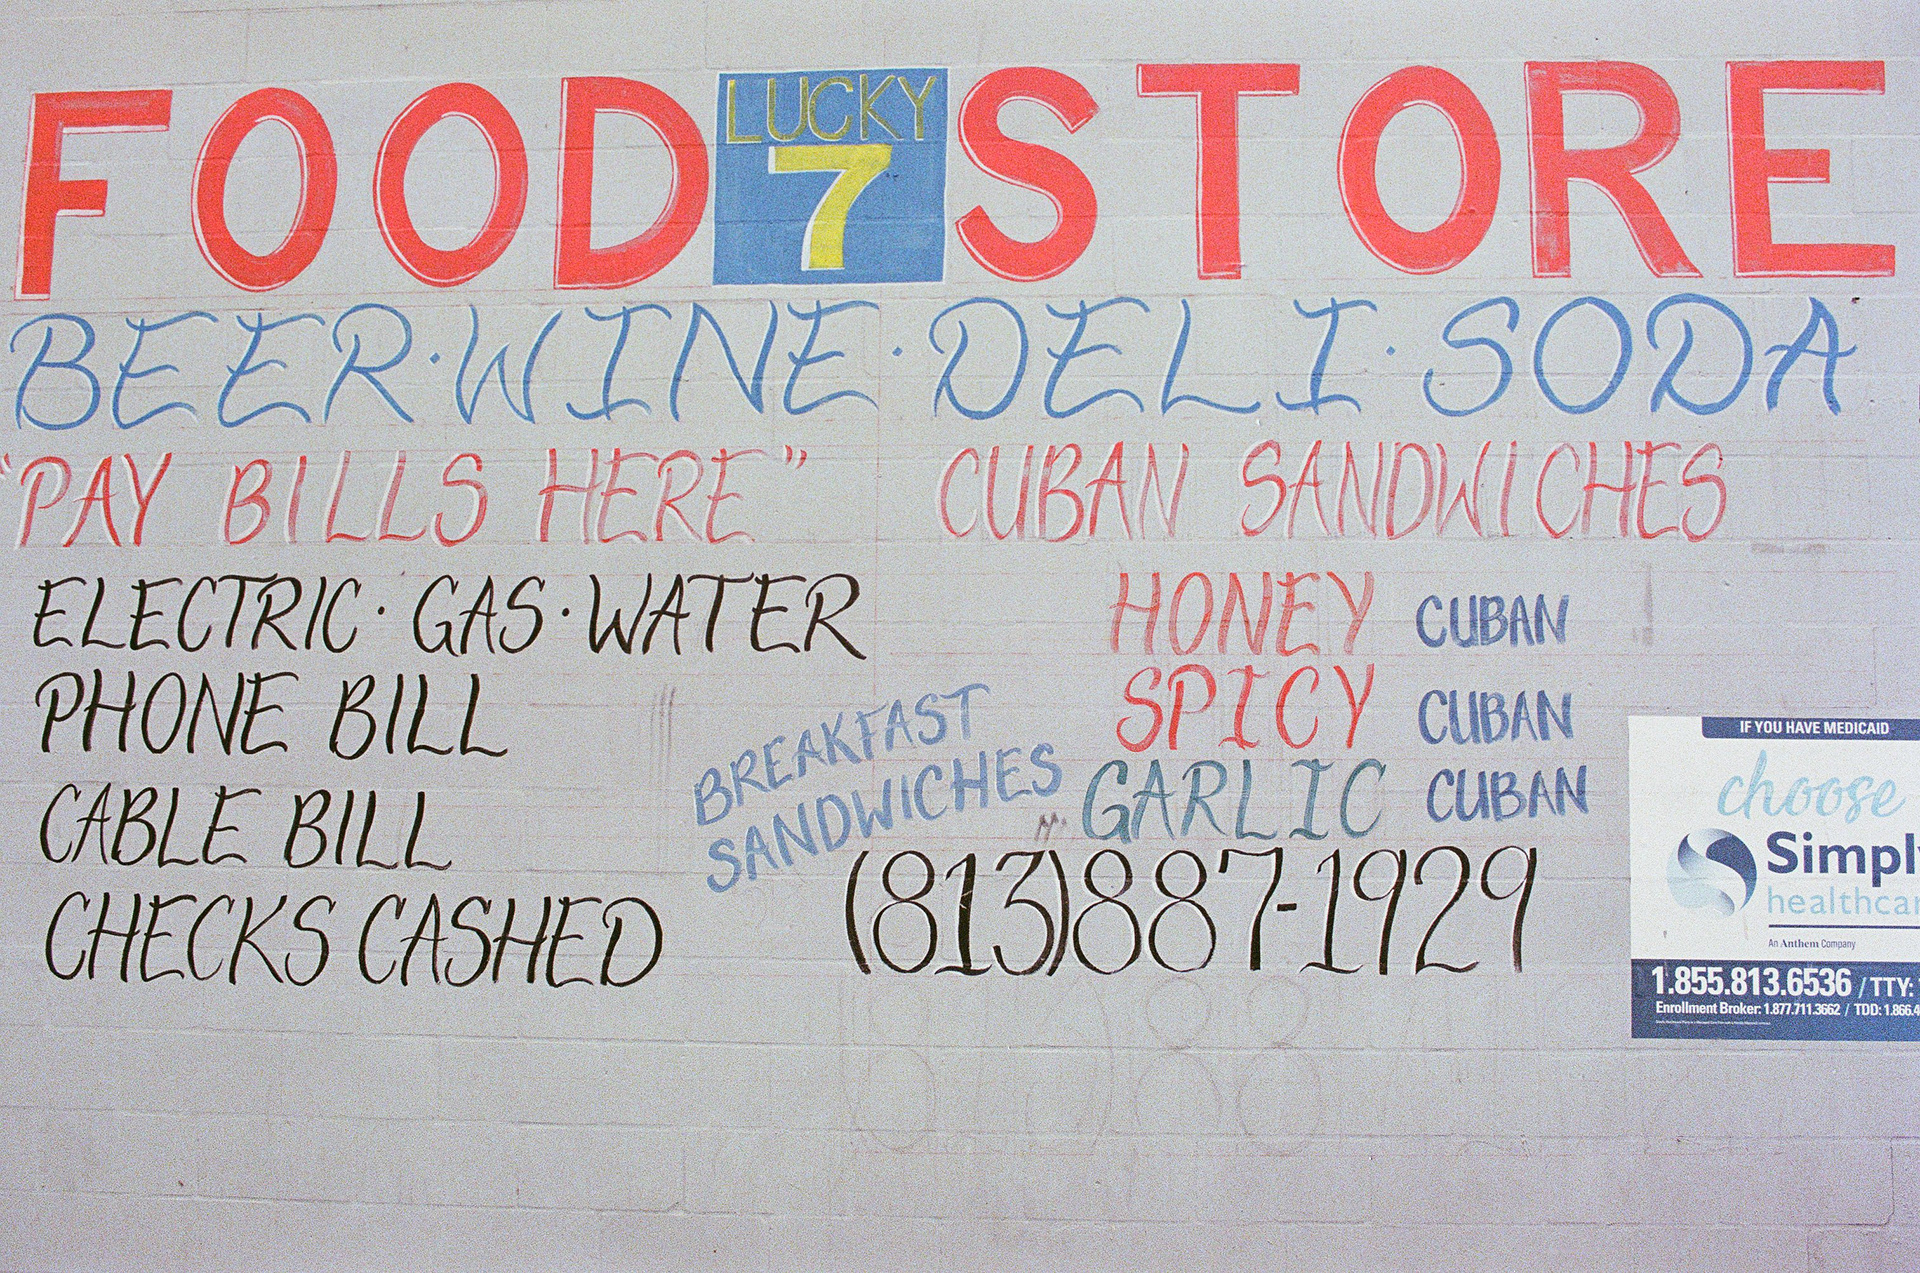 FOOD LUCKY 7 STORE
BEER·WINE·DELI·SODA
"PAY BILLS HERE"
ELECTRIC·GAS·WATER
PHONE BILL
CABLE BILL
CHECKS CASHED
CUBAN SANDWICHES
HONEY CUBAN
SPICY CUBAN
GARLIC CUBAN
BREAKFAST
SANDWICHES
(813)887-1929
IF YOU HAVE MEDICAID
choose
Simply
healthcar
An Anthem Company
1.855.813.6536 / TTY:
Enrollment Broker: 1.877.711.3662 / TDD: 1.866.4